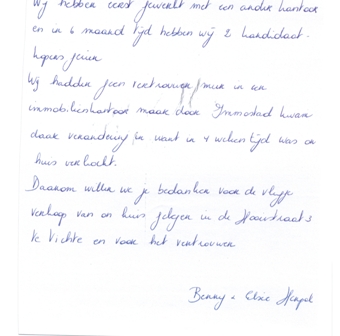 Wij hebben eerst gewerkt met een ander kantoor
en in 6 maand tijd hebben wij 2 kandidaat-
kopers gezien
Wij hadden geen vertrouwen meer in een
immobiliënkantoor maar door Immostad kwam
daar verandering in want in 4 weken tijd was ons
huis verkocht.
Daarom willen we je bedanken voor de vlugge
verkoop van ons huis gelegen in de
te Vichte en voor het vertrouwen
Benny + Elsie